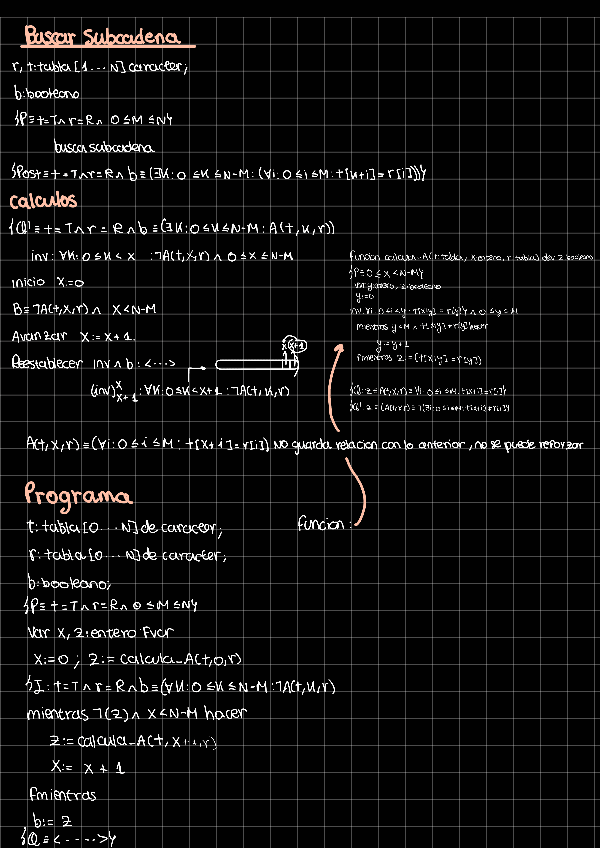 Buscar Subcadena
r, t: tabla [1...N] caracter;
b: booleano
{P≡ t=T ∧ r=R ∧ 0≤M≤N}
buscasubcadena
{Post≡ t=T ∧ r=R ∧ b≡(∃K: 0≤K≤N-M: (∀i: 0≤i≤M: t[K+i]=r[i]))}
calculos
{Q'≡ t=T ∧ r=R ∧ b≡(∃K: 0≤K≤N-M: A(t,K,r))
inv: ∀K: 0≤K<x :¬A(t,x,r) ∧ 0≤x≤N-M
inicio x:=0
B≡¬A(t,x,r) ∧ x<N-M
Avanzar x:=x+1.
Reestablecer inv ∧ b: <--->
x x+1
(inv)ˣₓ₊₁: ∀K: 0≤K<x+1: ¬A(t,K,r)
A(t,x,r)≡(∀i: 0≤i≤M: t[x+i]=r[i]) No guarda relacion con lo anterior, no se puede reforzar
funcion calcula_A(t:tabla, x:entero, r:tabla) dev z:booleano
{P≡0≤x<N-M}
var y:entero, z:booleano
y:=0
mientras y<M ∧ t[x+y]=r[y] hacer
y:=y+1
fmientras z:=(t[x+y]=r[y])
Programa
t: tabla [0...N] de caracter;
r: tabla [0...N] de caracter;
b: booleano;
{P≡ t=T ∧ r=R ∧ 0≤M≤N}
Var x, z: entero Fvar
x:=0 ; z:= calcula_A(t,0,r)
{I: t=T ∧ r=R ∧ b≡(∀K: 0≤K≤N-M: ¬A(t,K,r)
mientras ¬(z) ∧ x<N-M hacer
z:= calcula_A(t,x+1,r)
x:= x + 1
fmientras
b:= z
{Q≡<---->}
funcion: